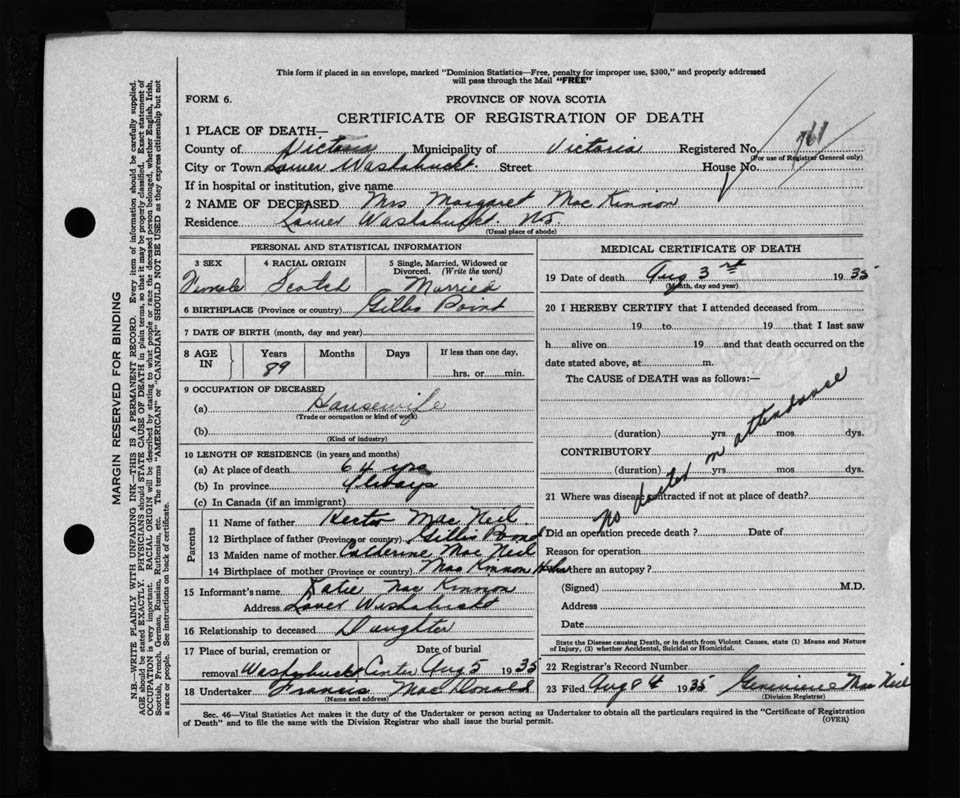 This form if placed in an envelope, marked "Dominion Statistics—Free, penalty for improper use, $300," and properly addressed
will pass through the Mail "FREE"
FORM 6.
PROVINCE OF NOVA SCOTIA
CERTIFICATE OF REGISTRATION OF DEATH
1 PLACE OF DEATH—
County of Victoria Municipality of Victoria Registered No. 761
(For use of Registrar General only)
City or Town Lower Washabuckt. Street House No.
If in hospital or institution, give name
2 NAME OF DECEASED Mrs Margaret Mac Kinnon
Residence Lower Washabuckt. NS.
(Usual place of abode)
PERSONAL AND STATISTICAL INFORMATION
3 SEX 4 RACIAL ORIGIN 5 Single, Married, Widowed or Divorced. (Write the word)
Female Scotch Married
6 BIRTHPLACE (Province or country) Gillis Point
7 DATE OF BIRTH (month, day and year)
8 AGE IN Years Months Days If less than one day,
89 hrs. or min.
9 OCCUPATION OF DECEASED
(a) Housewife
(Trade or occupation or kind of work)
(b)
(Kind of industry)
10 LENGTH OF RESIDENCE (in years and months)
(a) At place of death 64 yrs
(b) In province Always
(c) In Canada (if an immigrant)
Parents
11 Name of father Hector Mac Neil.
12 Birthplace of father (Province or country) Gillis Point
13 Maiden name of mother Catherine Mac Neil
14 Birthplace of mother (Province or country) Mac Kinnon
15 Informant's name Katie Mac Kinnon
Address Lower Washabuckt
16 Relationship to deceased Daughter
17 Place of burial, cremation or Date of burial
removal Washabuckt Center Aug 5 1935
18 Undertaker Francis Mac Donald
(Name and address)
MEDICAL CERTIFICATE OF DEATH
19 Date of death Aug 3rd 1935
(Month, day and year)
20 I HEREBY CERTIFY that I attended deceased from
19 to 19 that I last saw
h alive on 19 and that death occurred on the
date stated above, at m.
The CAUSE of DEATH was as follows:—
no doctor in attendance
(duration) yrs mos dys.
CONTRIBUTORY
(duration) yrs mos dys.
21 Where was disease contracted if not at place of death?
Did an operation precede death? Date of
Reason for operation
Was there an autopsy?
(Signed) M.D.
Address
Date
State the Disease causing Death, or in death from Violent Causes, state (1) Means and Nature
of Injury, (2) whether Accidental, Suicidal or Homicidal.
22 Registrar's Record Number
23 Filed Aug 8th 1935 Genevieve Mac Neil
(Division Registrar)
Sec. 46—Vital Statistics Act makes it the duty of the Undertaker or person acting as Undertaker to obtain all the particulars required in the "Certificate of Registration
of Death" and to file the same with the Division Registrar who shall issue the burial permit.
(OVER)
MARGIN RESERVED FOR BINDING
N.B.—WRITE PLAINLY WITH UNFADING INK—THIS IS A PERMANENT RECORD. Every item of information should be carefully supplied.
AGE should be stated EXACTLY. PHYSICIANS should STATE CAUSE OF DEATH in plain terms, so that it may be properly classified. Exact statement of
OCCUPATION is very important. RACIAL ORIGIN will be described by stating to what people or race the deceased person belonged, whether English, Irish,
Scottish, French, German, Russian, Ruthenian, etc. The terms "AMERICAN" or "CANADIAN" SHOULD NOT BE USED as they express citizenship but not
a race or people. See instructions on back of certificate.